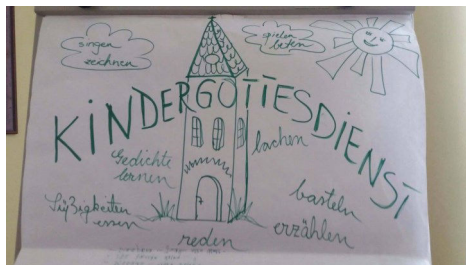 singen
zeichnen
spielen
beten
KINDERGOTTESDIENST
Gedichte
lernen
lachen
Süßigkeiten
essen
basteln
erzählen
reden